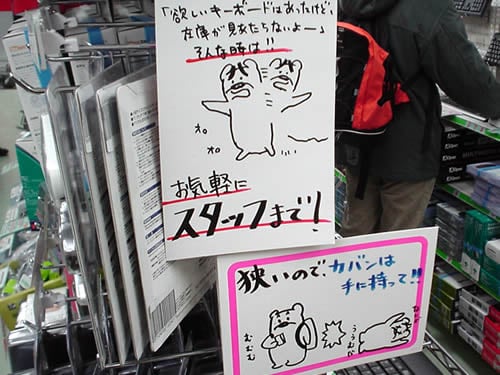 「欲しいキーボードはあったけど、
在庫が見あたらないよー」
そんな時は!!
オロ
オロ
お気軽に
スタッフまで!
狭いので カバンは
手に持って!!
むむむ